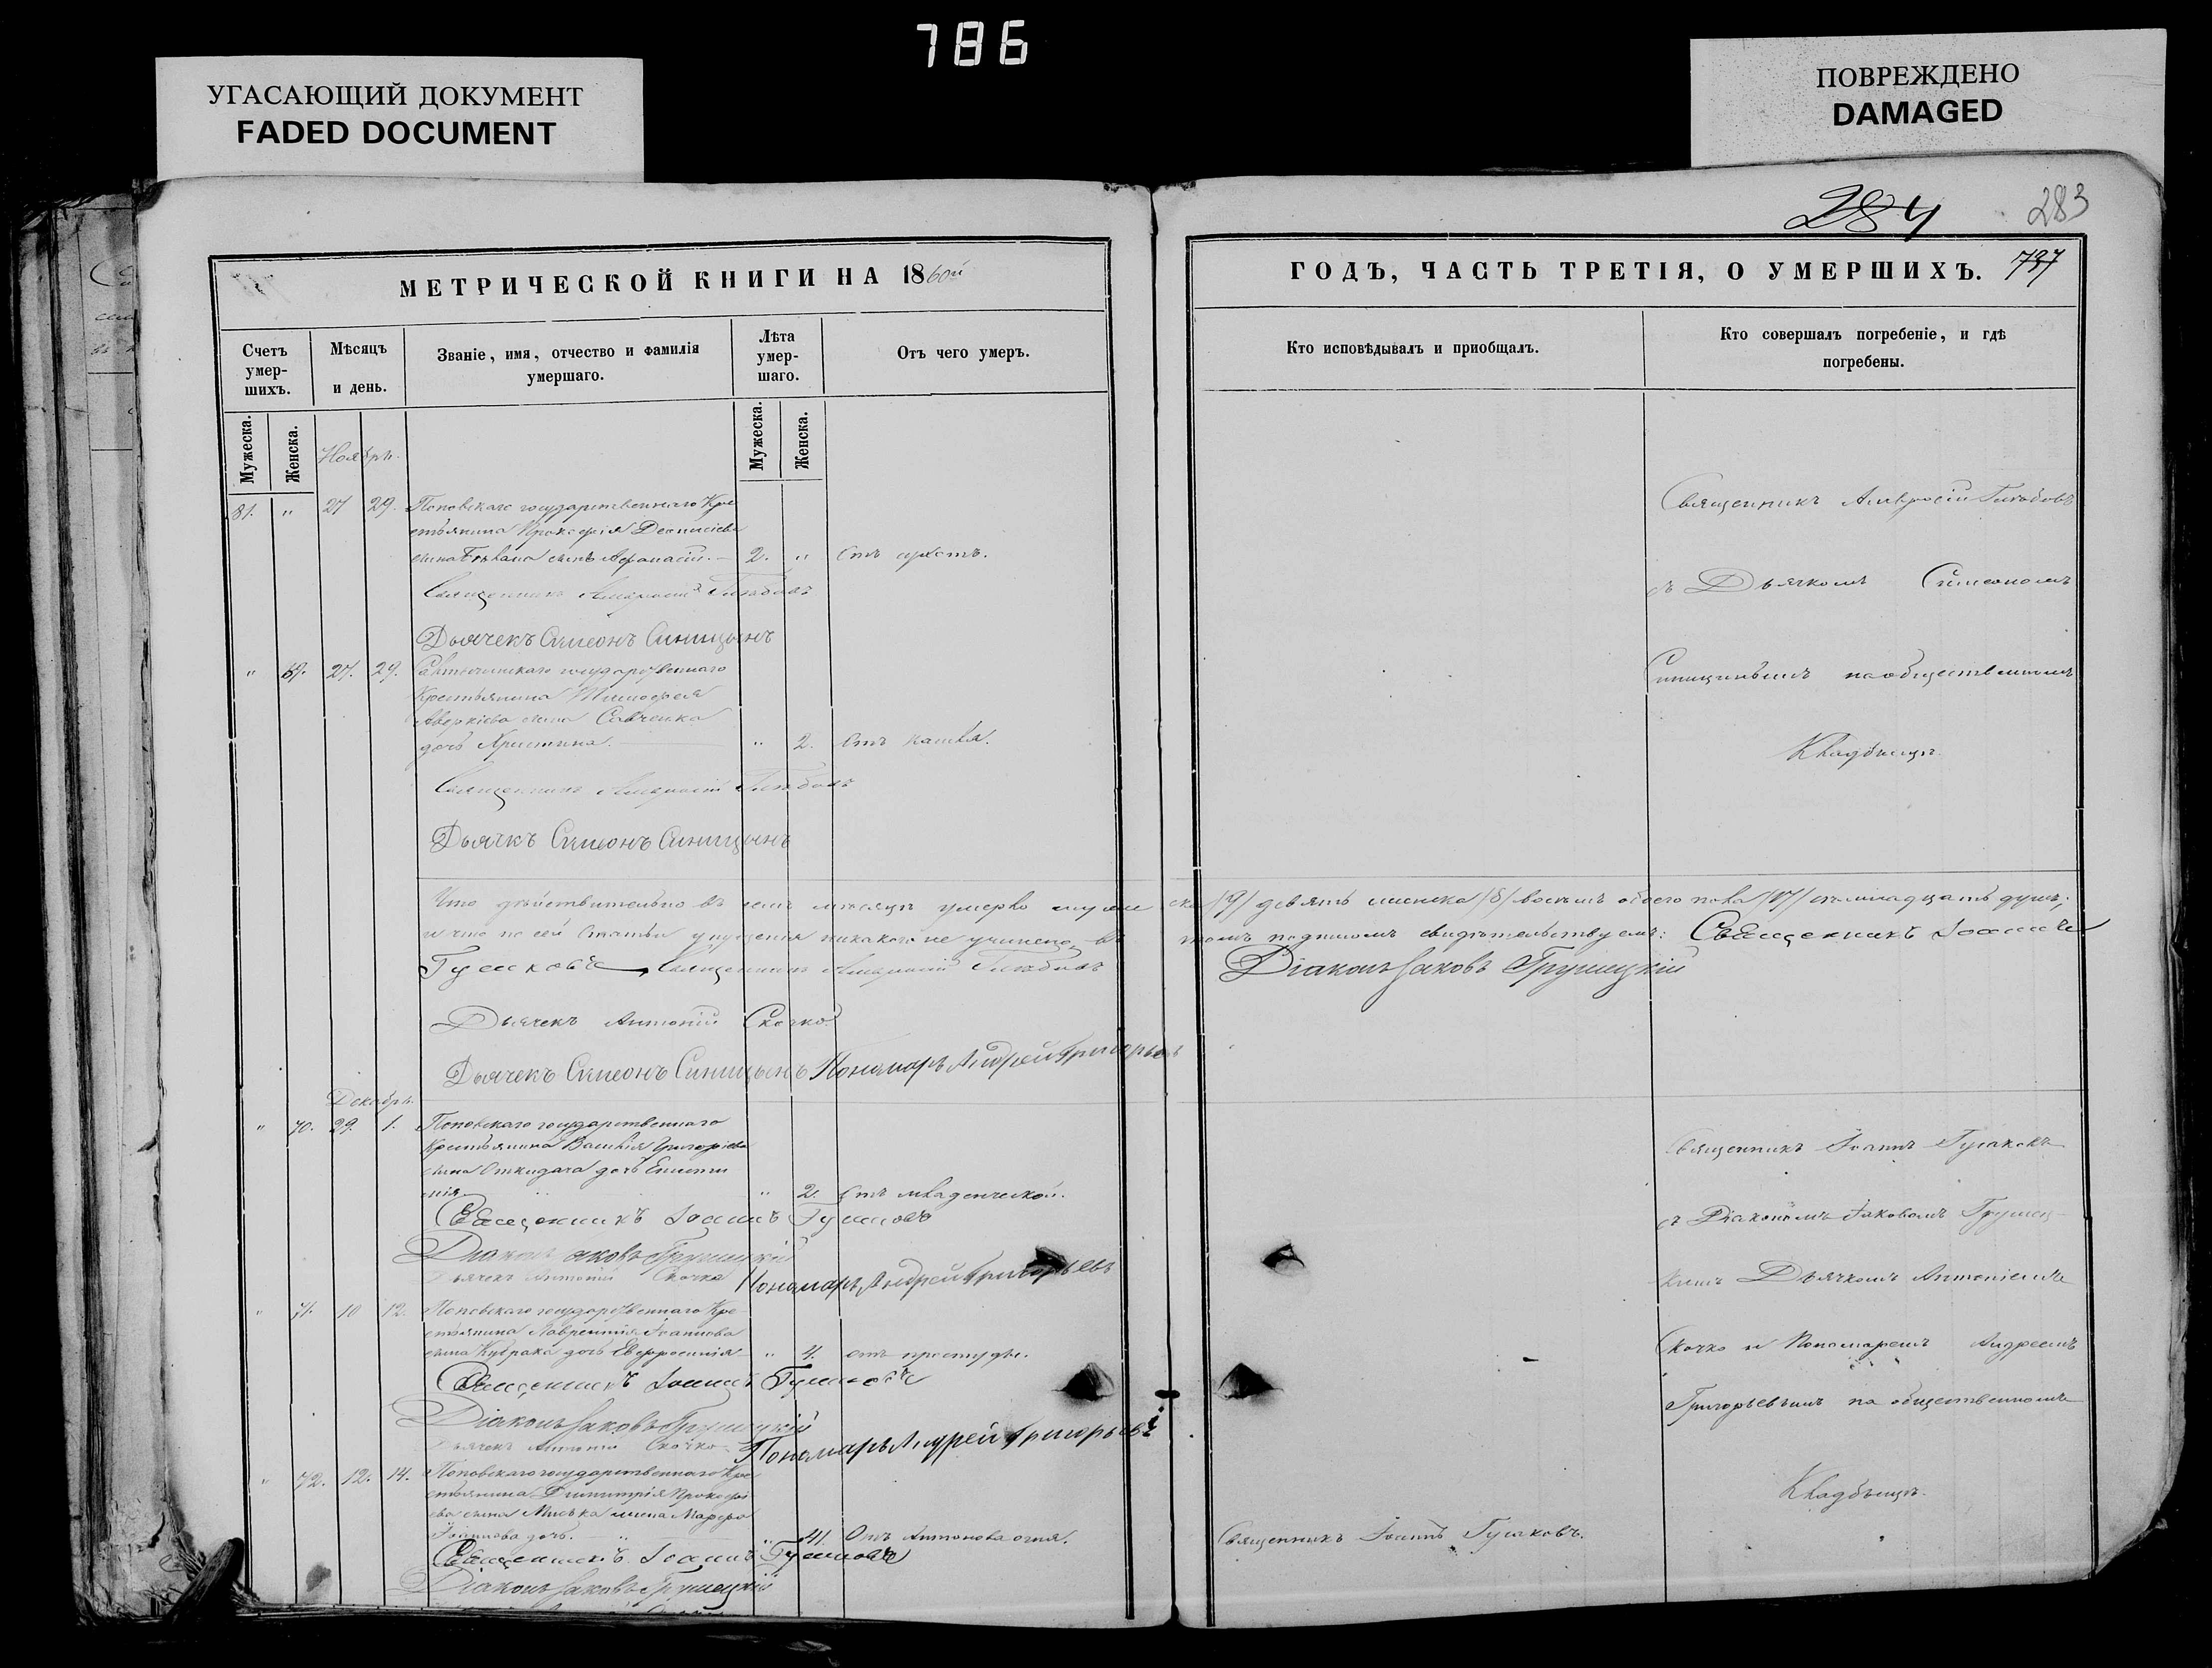 786
УГАСАЮЩИЙ ДОКУМЕНТ
FADED DOCUMENT
ПОВРЕЖДЕНО
DAMAGED
284
283
МЕТРИЧЕСКОЙ КНИГИ НА 1860й
ГОДЪ, ЧАСТЬ ТРЕТІЯ, О УМЕРШИХЪ. 737
Счетъ умер-шихъ.
Мѣсяцъ и день.
Званіе, имя, отчество и фамилія умершаго.
Лѣта умер-шаго.
Отъ чего умеръ.
Кто исповѣдывалъ и приобщалъ.
Кто совершалъ погребеніе, и гдѣ погребены.
Мужеска.
Женска.
Мужеска.
Женска.
Ноябрь.
81. " 27 29. Поповскаго государственнаго Кре
стьянина Прокофія Деонисіева
сына сынъ Афанасій. — 2. "
Священникъ Амвросій Глѣбовъ
Дьячекъ Симеонъ Синицынъ
" 69. 27. 29. государственнаго
Крестьянина Тимофея
Аверкіева сына Савченка
дочь Христина. " 2. Отъ кашля.
Священникъ Амвросій Глѣбовъ
Дьячкъ Симеонъ Синицынъ
Священникъ Амвросій Глѣбовъ
съ Дьячкомъ Симеономъ
Синицинымъ на общественномъ
Кладбищѣ.
Что дѣйствительно въ семъ мѣсяцѣ умерло мужеска /9/ девять женска /8/ восемь обоего пола /17/ семнадцать душъ;
и что по сей статьи упущенія никакого не учинено, въ томъ подписомъ свидѣтельствуемъ: Священникъ Іоаннъ
Гусаковъ Священникъ Амвросій Глѣбовъ Діаконъ Іаковъ Грушецкій
Дьячекъ Антоній Скочко
Дьячекъ Симеонъ Синицынъ Пономарь Андрей Григорьевъ
Декабрь.
" 70. 29. 1. Поповскаго государственнаго
Крестьянина Василія Григоріева
сына Откидача дочь Еписти
мія. " 2. Отъ младенческой.
Священникъ Іоаннъ Гусаковъ
Діаконъ Іаковъ Грушецкій
Дьячекъ Антоній Скочко Пономарь Андрей Григорьевъ
" 71. 10 12. Поповскаго государственнаго Кре
стьянина Лаврентія Іоаннова
сына дочь Евфросинія " 4. отъ простуды.
Священникъ Іоаннъ Гусаковъ
Діаконъ Іаковъ Грушецкій
Дьячекъ Антоній Скочко Пономарь Андрей Григорьевъ
" 72. 12. 14. Поповскаго государственнаго Кре
стьянина Димитрія Прокофі
ева сына жена Марфа
Іоаннова дочь. " 41. Отъ Антонова огня.
Священникъ Іоаннъ Гусаковъ
Діаконъ Іаковъ Грушецкій
Священникъ Іоаннъ Гусаковъ.
Священникъ Іоаннъ Гусаковъ
съ Діакономъ Іаковомъ Грушец
кимъ Дьячкомъ Антоніемъ
Скочко и Пономаремъ Андреемъ
Григорьевымъ на общественномъ
Кладбищѣ.